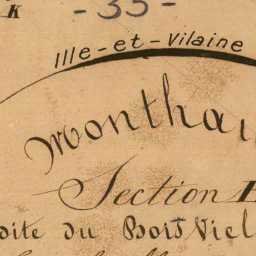 K - 35 -
Ille-et-Vilaine
Montha
Section
oite du Bois Viel